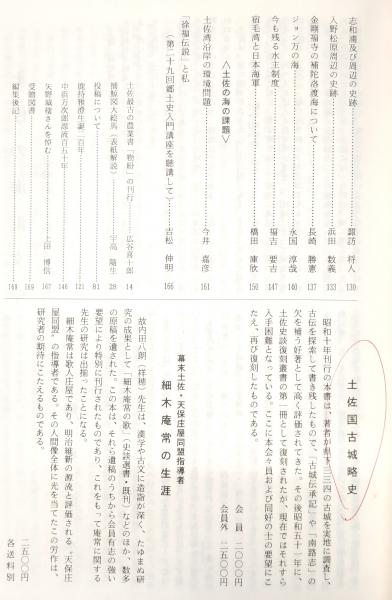 志和浦及び周辺の史跡 諏訪 将人 130
入野松原周辺の史跡 浜田 数義 133
金剛福寺の補陀洛渡海について 長崎 勝憲 137
ジョン万の海 永国 淳哉 140
今も残る水主制度 福吉 要吉 147
宿毛湾と日本海軍 橋田 庫欣 150
〈土佐の海の課題〉
土佐湾沿岸の環境問題 今井 嘉彦 161
「徐福伝説」と私
(第二十九回郷土史入門講座を聴講して) 吉松 伸明 166
土佐最古の農業書「物紛」の刊行 広谷喜十郎 14
捕鯨図大絵馬(表紙解説) 宇高 随生 28
投稿について 81
鹿持雅澄生誕二百年 121
中浜万次郎漂流百五十年 146
矢野城楼さんを悼む 上田 博信 167
受贈図書 168
編集後記 169
土佐国古城略史
昭和十年刊行の本書は、著者が県下三三四の古城を実地に調査し、
古伝を探索して書き残したもので、「古城伝承記」や「南路志」の
欠を補う好著として高く評価されてきた。その後昭和五十一年に、
土佐史談復刻叢書の第一冊として復刻されたが、現在ではそれすら
入手困難となっている。ここに本会々員および同好の士の要望にこ
たえ、再び復刻したものである。
会員 二〇〇〇円
会員外 二五〇〇円
幕末土佐・天保庄屋同盟指導者
細木庵常の生涯
故内田八朗(祥穂)先生は、漢学や古文に造詣が深く、たゆまぬ研
究の成果として「細木庵常の歌」(史談選書・既刊)などのほか、数多
の原稿を遺された。この本は、それら遺稿のうちから会員有志の強い
要望により特別に刊行されたものであり、これをもって庵常に関する
先生の研究は出揃ったことになる。
細木庵常は歌人庄屋であり、明治維新の源流と評価される「天保庄
屋同盟」の指導者である。その人間像全体に光を当てたこの労作は、
研究者の期待にこたえるものである。
二五〇〇円
各送料別